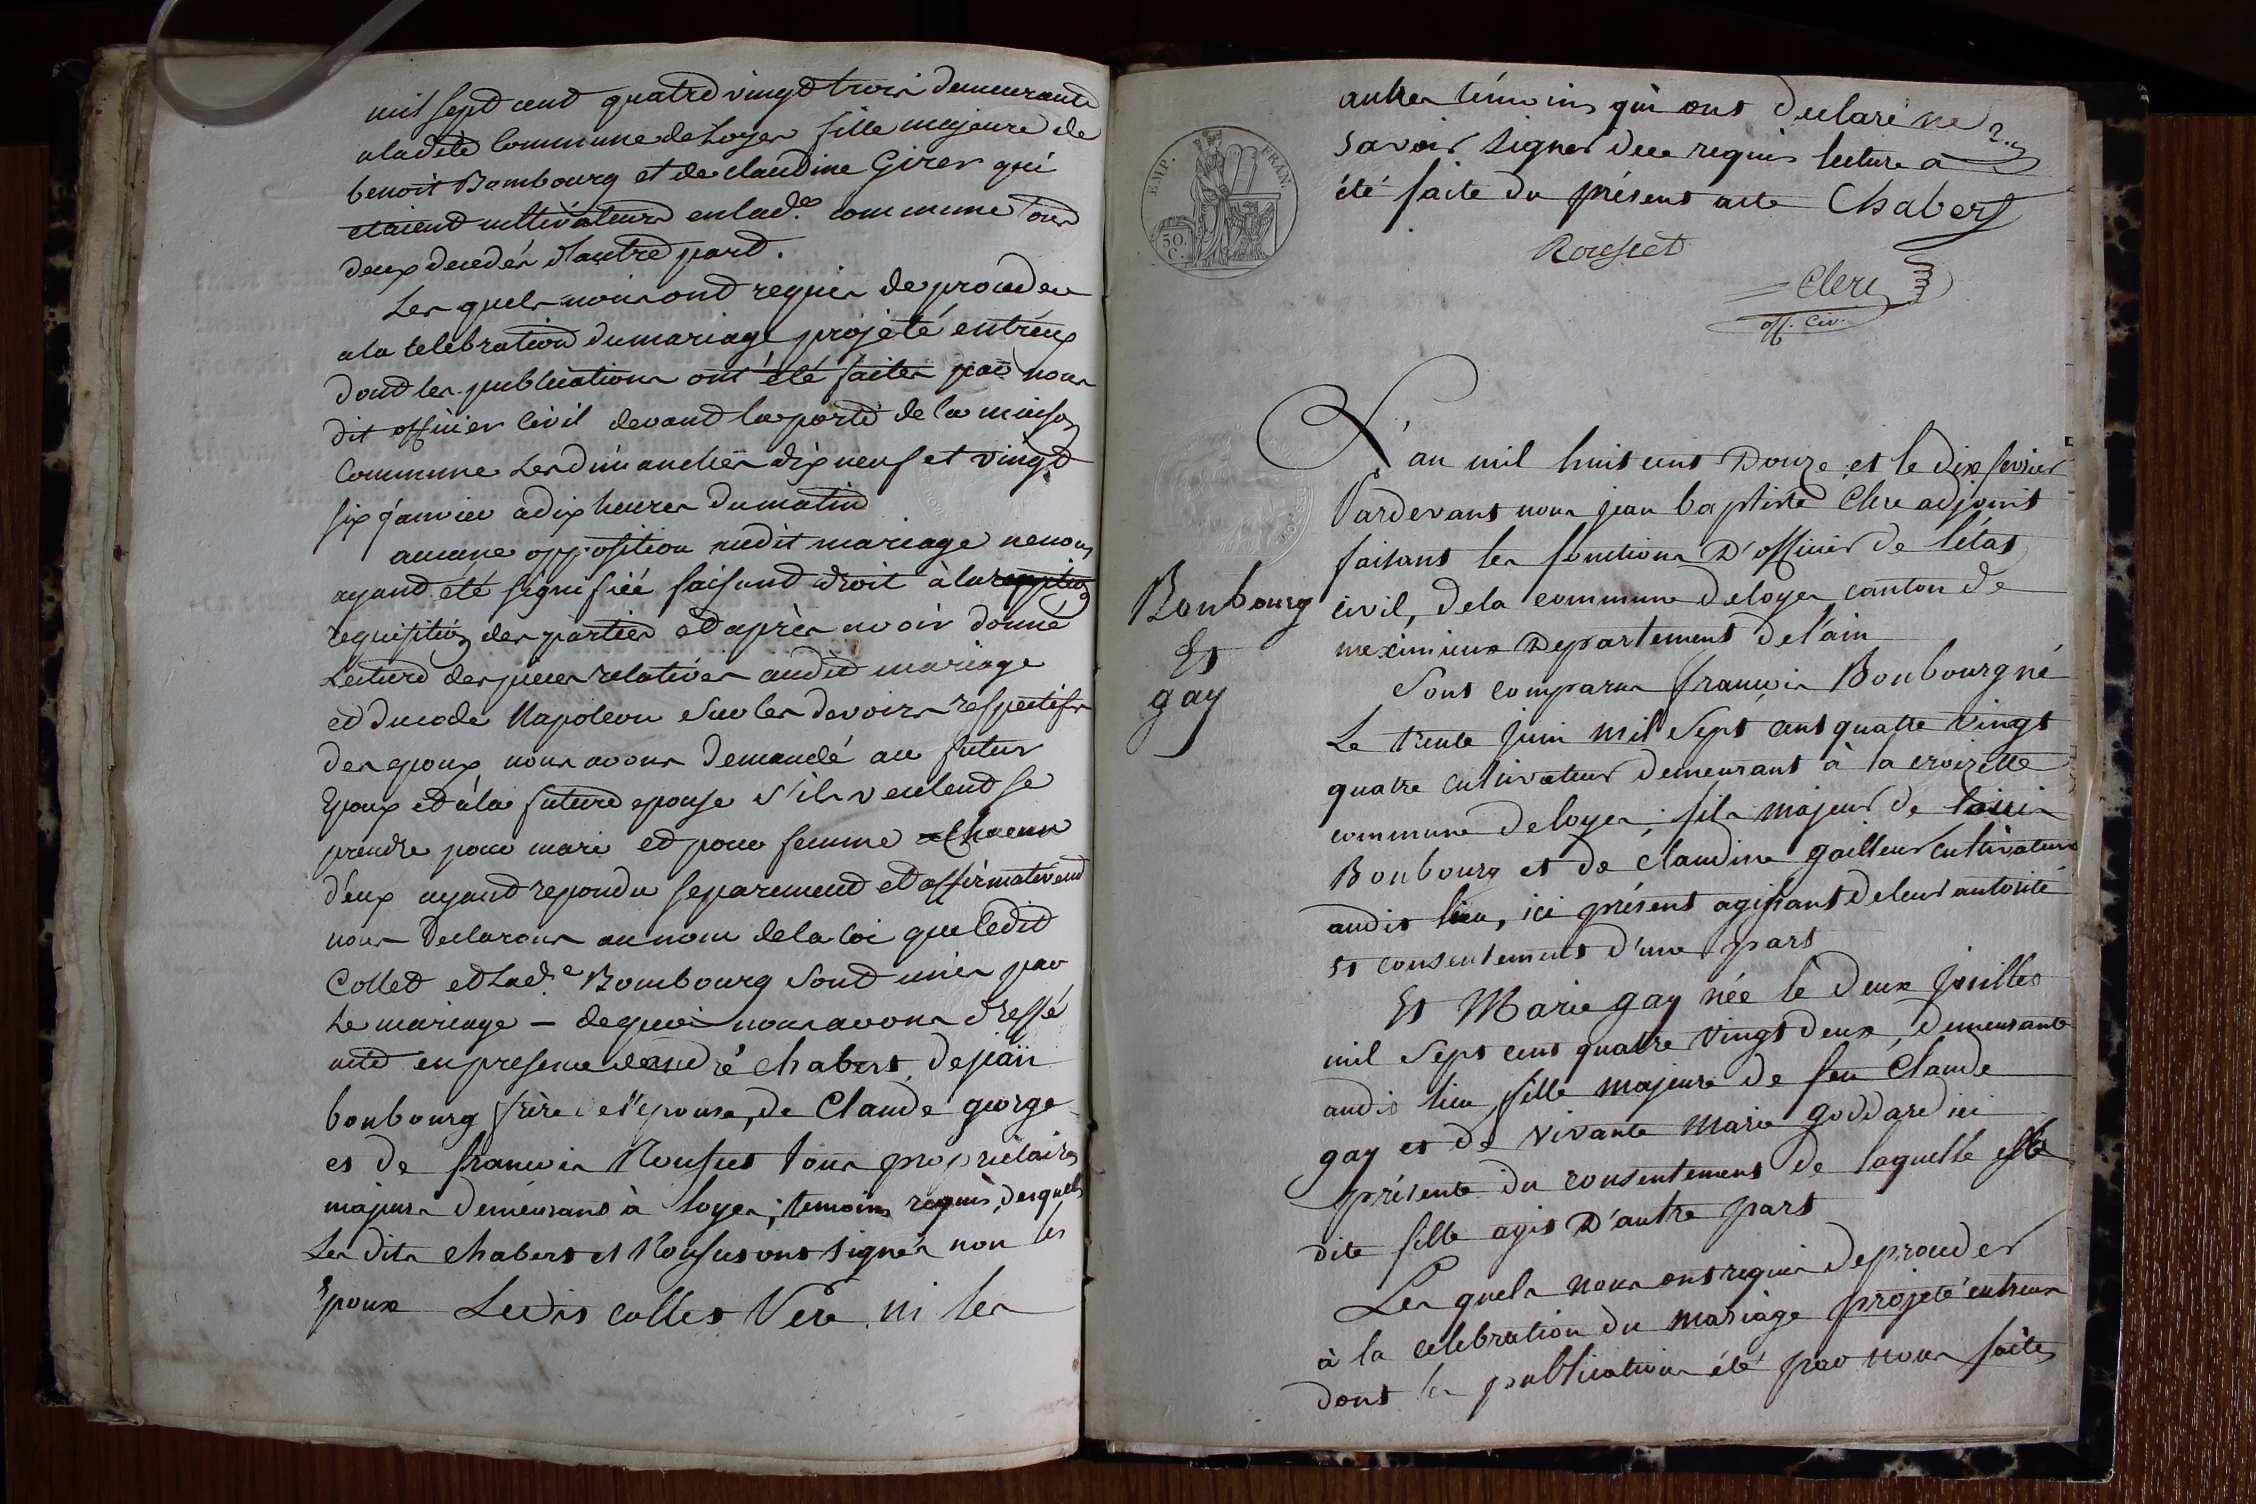 mil sept cent quatre vingt trois demeurante
a ladite Commune de Loyes fille majeure de
benoit Bombourg et de claudine Girer qui
etaient cultivateurs en lad.e commune tous
deux decedés d'autre part.
Les quels nous ont requis de proceder
a la celebration du mariage projeté entreux
dont les publications ont été faites par nous
dit officier Civil devant la porte de la maison
Commune les dimanches dix neuf et vingt
six janvier a dix heures du matin
aucune opposition audit mariage ne nous
ayant été signifiée faisant droit à la
requisition des parties et après avoir donné
Lecture des pieces relatives audit mariage
et du code Napoleon sur les devoirs respectifs
des epoux nous avons demandé au futur
Epoux et à la future epouse s'ils veulent se
prendre pour mari et pour femme Chacun
d'eux ayant repondu separement et affirmativement
nous declarons au nom de la loi que ledit
Collet et Lad.e Bombourg sont unis par
Le mariage – de quoi nous avons dressé
acte en presence d'andré Chabert, de jean
bonbourg frère de l'epouse, de Claude george
et de francois Rousset tous proprietaires
majeurs demeurant à loyes, temoins requis, desquels
Les dits Chabert et Rousset ont signés non les
Epoux Ledit collet Vere ni les
autres témoins qui ont declaré ne
savoir signer de ce requis lecture a
été faite du présent acte Chabert
Rousset
Clerc
off. civ.
EMP. FRAN.
50.
C.
L'an mil huit cent Douze et le dix fevrier
Pardevant nous jean baptiste Clerc adjoint
faisant les fonctions D'officier de l'état
civil, de la commune de loyes canton de
meximieux Departement de l'ain
Bonbourg
Et
gay
Sont comparus francois Bonbourg né
Le trente juin mil sept cent quatre vingt
quatre cultivateur demeurant à la croizette
commune de loyes, fils majeur de louis
Bonbourg et de Claudine gailleur cultivateurs
audit lieu, ici présent agissant de leur autorité
et consentement d'une part
Et Marie gay née le deux juillet
mil sept cent quatre vingt deux, demeurante
audit lieu fille majeure de feu Claude
gay et de vivante Marie goddard ici
présente du consentement de laquelle elle
dite fille agit D'autre part
Les quels nous ont requis de proceder
à la celebration du mariage projeté entreux
dont les publications été par nous faites